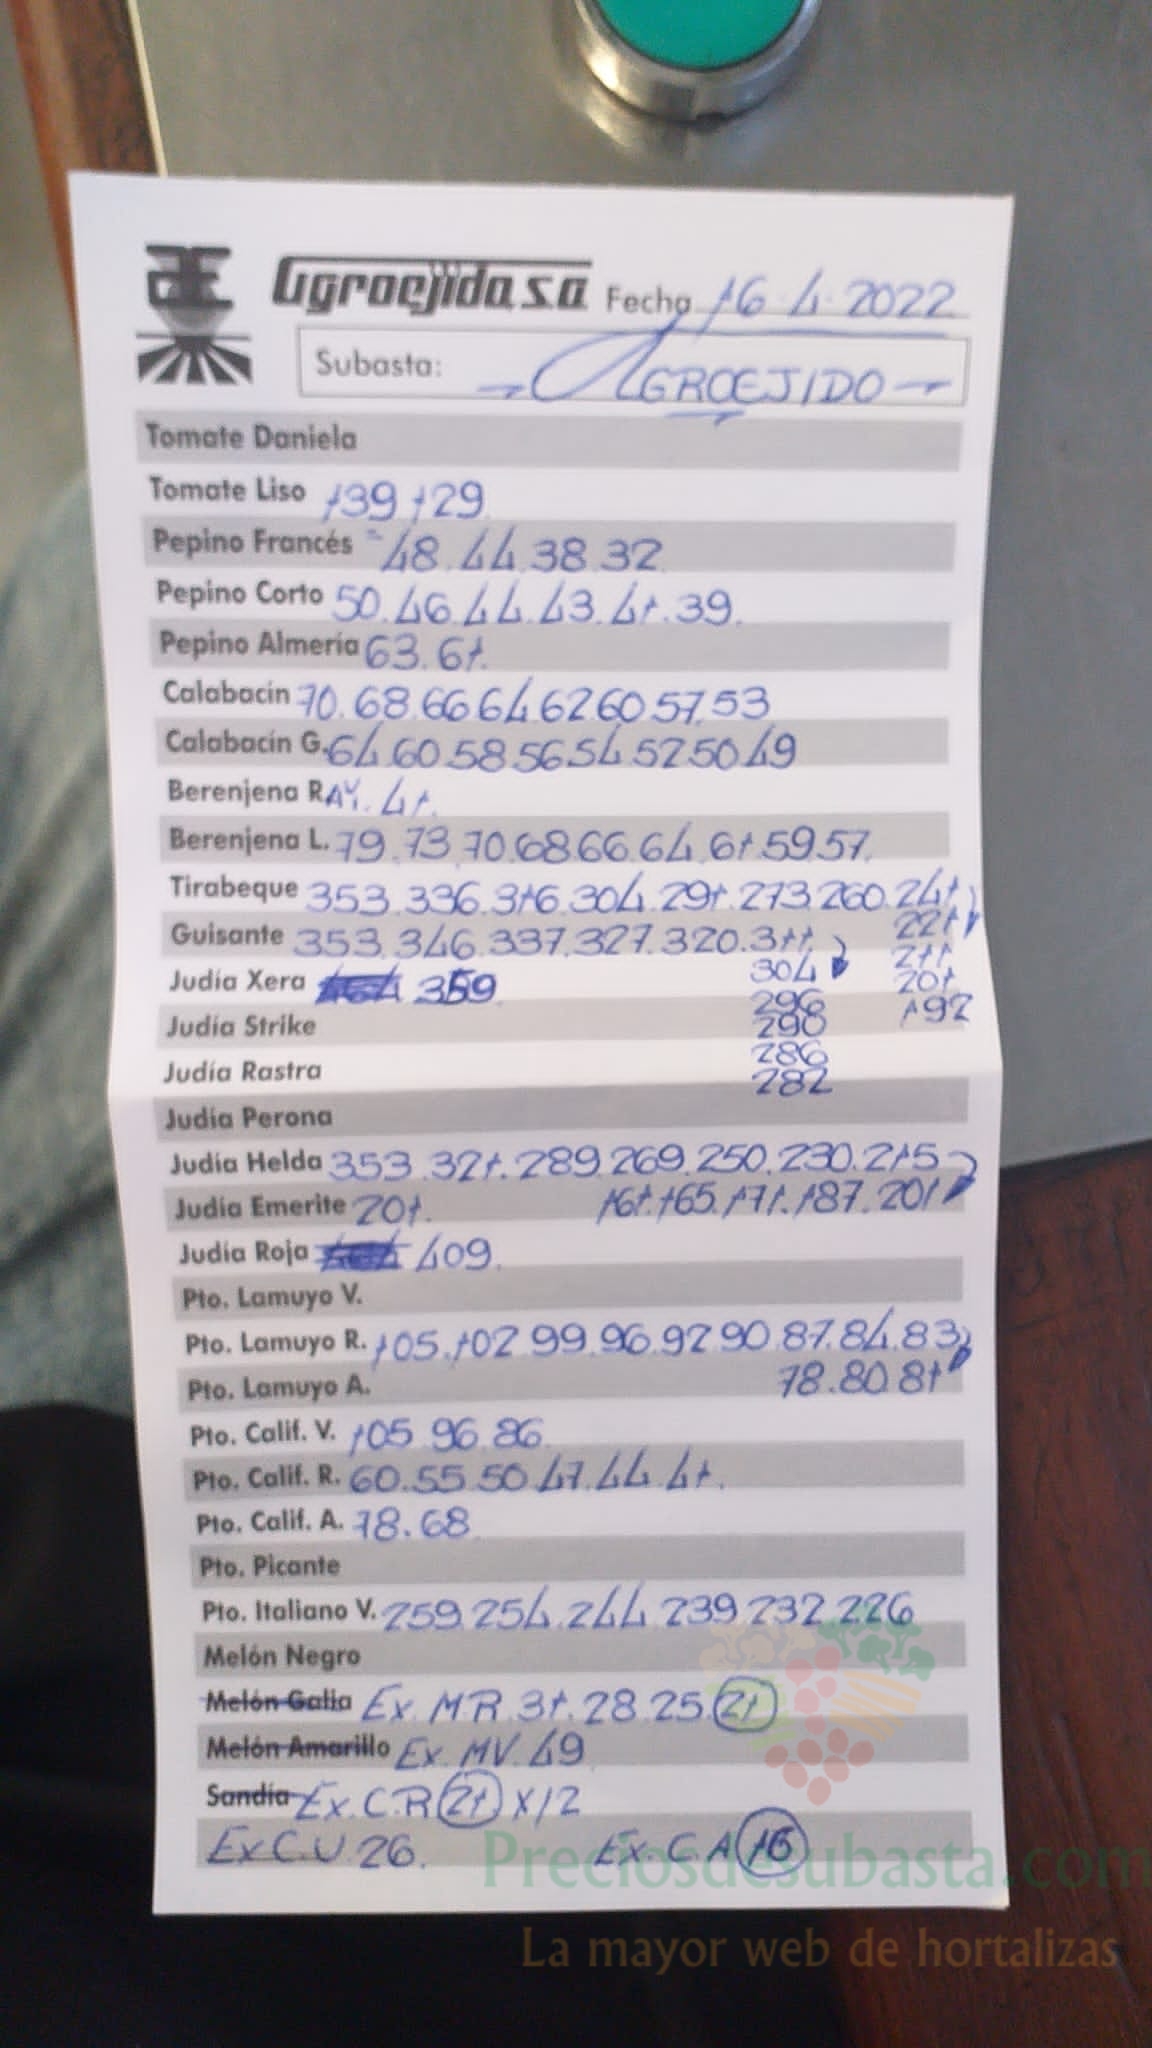 Agroejido, S.A. Fecha 16-4-2022
Subasta: AGROEJIDO
Tomate Daniela
Tomate Liso 139 129
Pepino Francés 48.44.38.32
Pepino Corto 50.46.44.43.41.39.
Pepino Almería 63.61.
Calabacín 70.68.66 64 62 60 57.53
Calabacín G. 64 60 58 56 54 52 50 49
Berenjena RAY. 41.
Berenjena L. 79.73 70.68 66 64 61 59 57.
Tirabeque 353.336.316.304.291.273.260.241
221
Guisante 353.346.337.327.320.311
211
304
Judía Xera 359
201
296
192
Judía Strike
290
286
Judía Rastra
282
Judía Perona
Judía Helda 353.321.289.269.250.230.215
Judía Emerite 201. 161.165.171.187.201
Judía Roja 409.
Pto. Lamuyo V.
Pto. Lamuyo R. 105.102 99.96.92 90.87.84.83
Pto. Lamuyo A. 78.80 81
Pto. Calif. V. 105 96.86
Pto. Calif. R. 60.55.50.47.44.41.
Pto. Calif. A. 78.68
Pto. Picante
Pto. Italiano V. 259.254.244 239 232 226
Melón Negro
Melón Galia Ex. M.R. 31.28.25.21
Melón Amarillo Ex. MV. 49
Sandía Ex. C.R 21 X/2
Ex C.U 26. Ex. C.A 16
Preciosdesubasta.com
La mayor web de hortalizas